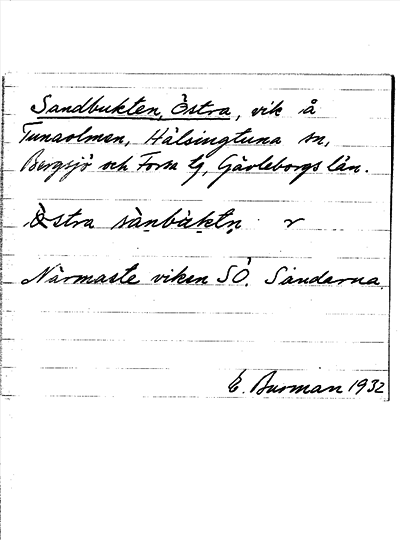 Sandbukten, Östra, vik å
Tunaolmen, Hälsingtuna sn,
Bergsjö och Forsa tg, Gävleborgs län.
Östra sànbùktn̥ v
Närmaste viken SÖ. Sandarna.
E. Burman 1932